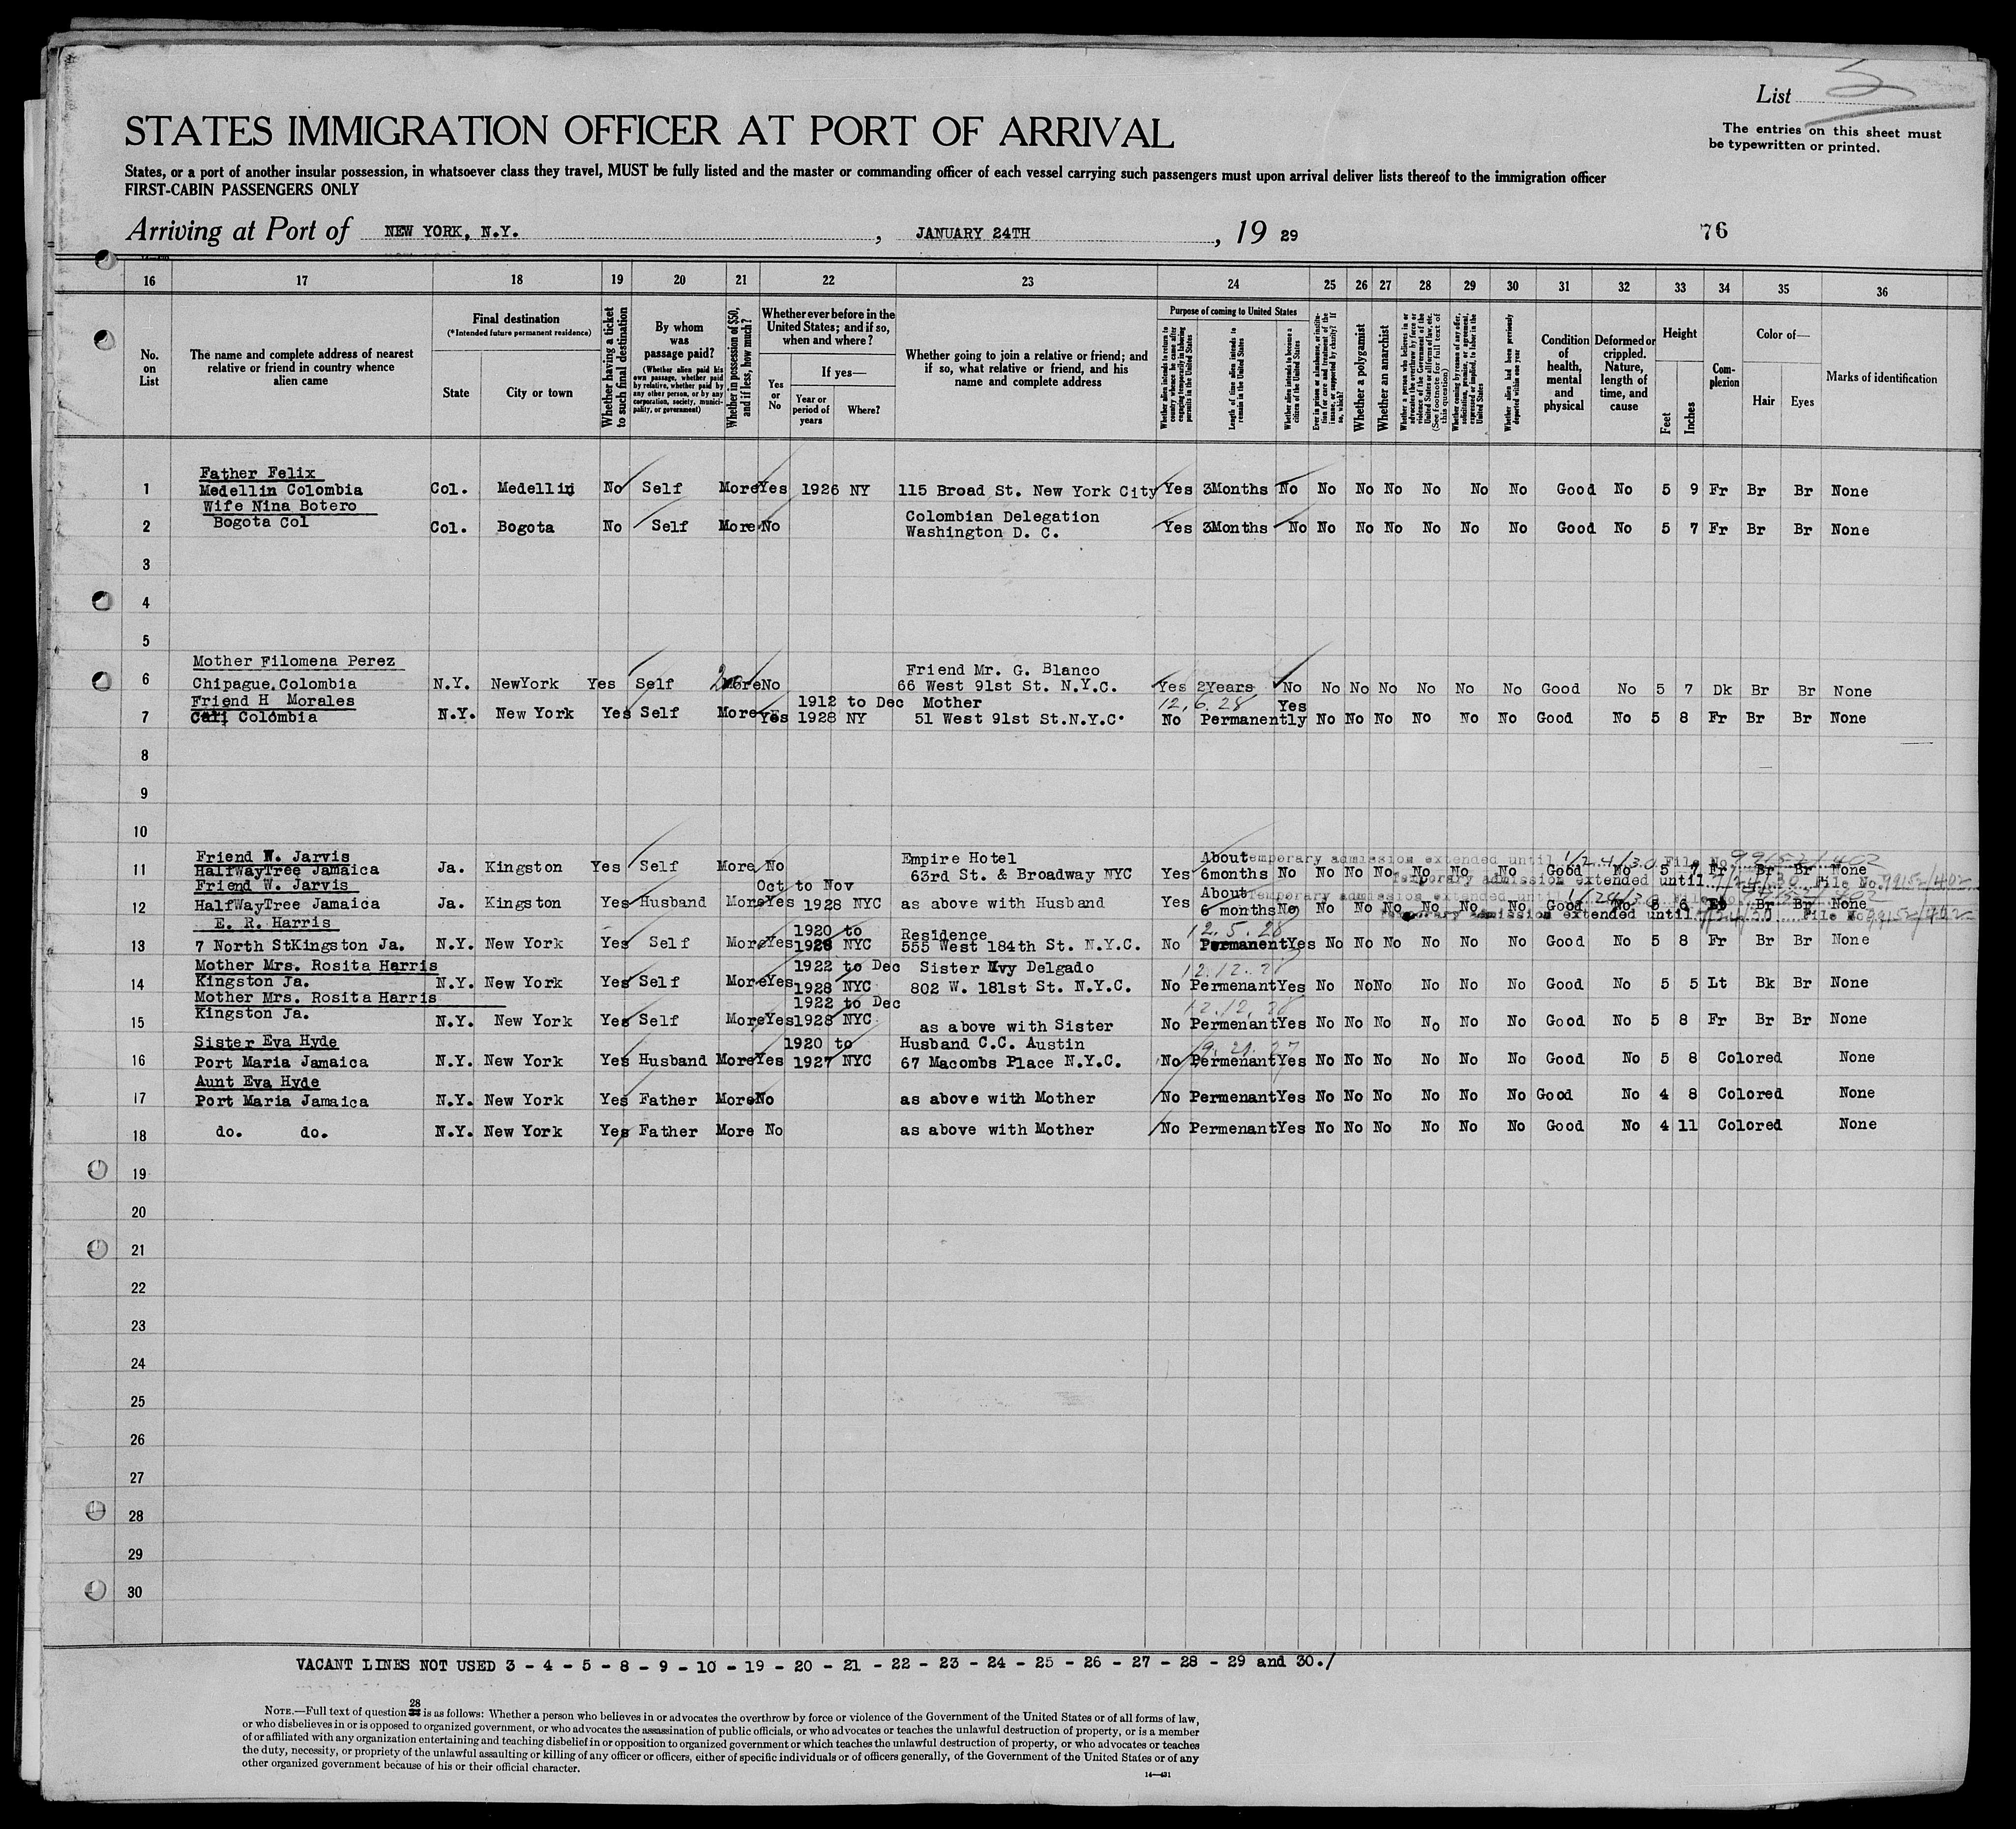 List 5
STATES IMMIGRATION OFFICER AT PORT OF ARRIVAL
The entries on this sheet must
be typewritten or printed.
States, or a port of another insular possession, in whatsoever class they travel, MUST be fully listed and the master or commanding officer of each vessel carrying such passengers must upon arrival deliver lists thereof to the immigration officer
FIRST-CABIN PASSENGERS ONLY
Arriving at Port of NEW YORK, N.Y. , JANUARY 24TH , 19 29 76
16 17 18 19 20 21 22 23 24 25 26 27 28 29 30 31 32 33 34 35 36
No. on List
The name and complete address of nearest relative or friend in country whence alien came
Final destination
(*Intended future permanent residence)
State City or town
Whether having a ticket to such final destination
By whom was passage paid?
(Whether alien paid his own passage, whether paid by relative, whether paid by any other person, or by any corporation, society, municipality, or government)
Whether in possession of $50, and if less, how much?
Whether ever before in the United States; and if so, when and where?
Yes or No
If yes—
Year or period of years
Where?
Whether going to join a relative or friend; and if so, what relative or friend, and his name and complete address
Purpose of coming to United States
Whether alien intends to return to country whence he came after engaging temporarily in laboring pursuits in the United States
Length of time alien intends to remain in the United States
Whether alien intends to become a citizen of the United States
Ever in prison or almshouse, or institution for care and treatment of the insane, or supported by charity? If so, which?
Whether a polygamist
Whether an anarchist
Whether a person who believes in or advocates the overthrow by force or violence of the Government of the United States or all forms of law, etc. (See footnote for full text of this question)
Whether coming by reason of any offer, solicitation, promise, or agreement, expressed or implied, to labor in the United States
Whether alien had been previously deported within one year
Condition of health, mental and physical
Deformed or crippled. Nature, length of time, and cause
Height
Feet Inches
Complexion
Color of—
Hair Eyes
Marks of identification
Father Felix
1 Medellin Colombia Col. Medellin No Self More Yes 1926 NY 115 Broad St. New York City Yes 3Months No No No No No No No Good No 5 9 Fr Br Br None
Wife Nina Botero
2 Bogota Col Col. Bogota No Self More No Colombian Delegation
Washington D. C. Yes 3Months No No No No No No No Good No 5 7 Fr Br Br None
3
4
5
Mother Filomena Perez Friend Mr. G. Blanco
6 Chipague.Colombia N.Y. NewYork Yes Self More No 66 West 91st St. N.Y.C. Yes 2Years No No No No No No No Good No 5 7 Dk Br Br None
Friend H Morales 1912 to Dec Mother 12.6.28 Yes
7 Cali Colombia N.Y. New York Yes Self More Yes 1928 NY 51 West 91st St.N.Y.C. No Permanently No No No No No No Good No 5 8 Fr Br Br None
8
9
10
Friend W. Jarvis Empire Hotel About Temporary admission extended until 1/24/30 File No. 99152/402
11 HalfWayTree Jamaica Ja. Kingston Yes Self More No 63rd St. & Broadway NYC Yes 6months No No No No No No No Good No 5 7 Fr Br Br None
Friend W. Jarvis Oct to Nov Temporary admission extended until 7/24/30 File No. 99152/402
About Temporary admission extended until 1/24/30 File No. 99152/402
12 HalfWayTree Jamaica Ja. Kingston Yes Husband More Yes 1928 NYC as above with Husband Yes 6 months No No No No No No No Good No 5 6 Br Br None
Temporary Admission extended until 7/24/30 File No 99152/402
E. R. Harris 1920 to Residence 12.5.28
13 7 North StKingston Ja. N.Y. New York Yes Self More Yes 1928 NYC 555 West 184th St. N.Y.C. No Permanent Yes No No No No No No Good No 5 8 Fr Br Br None
Mother Mrs. Rosita Harris 1922 to Dec Sister Ivy Delgado 12.12.28
14 Kingston Ja. N.Y. New York Yes Self More Yes 1928 NYC 802 W. 181st St. N.Y.C. No Permenant Yes No No No No No No Good No 5 5 Lt Bk Br None
Mother Mrs. Rosita Harris 1922 to Dec 12.12.28
15 Kingston Ja. N.Y. New York Yes Self More Yes 1928 NYC as above with Sister No Permenant Yes No No No No No No Good No 5 8 Fr Br Br None
Sister Eva Hyde 1920 to Husband C.C. Austin 9.21.27
16 Port Maria Jamaica N.Y. New York Yes Husband More Yes 1927 NYC 67 Macombs Place N.Y.C. No Permenant Yes No No No No No No Good No 5 8 Colored None
Aunt Eva Hyde
17 Port Maria Jamaica N.Y. New York Yes Father More No as above with Mother No Permenant Yes No No No No No No Good No 4 8 Colored None
18 do. do. N.Y. New York Yes Father More No as above with Mother No Permenant Yes No No No No No No Good No 4 11 Colored None
19
20
21
22
23
24
25
26
27
28
29
30
VACANT LINES NOT USED 3 - 4 - 5 - 8 - 9 - 10 - 19 - 20 - 21 - 22 - 23 - 24 - 25 - 26 - 27 - 28 - 29 and 30./
NOTE.—Full text of question 28 is as follows: Whether a person who believes in or advocates the overthrow by force or violence of the Government of the United States or of all forms of law,
or who disbelieves in or is opposed to organized government, or who advocates the assassination of public officials, or who advocates or teaches the unlawful destruction of property, or is a member
of or affiliated with any organization entertaining and teaching disbelief in or opposition to organized government or which teaches the unlawful destruction of property, or who advocates or teaches
the duty, necessity, or propriety of the unlawful assaulting or killing of any officer or officers, either of specific individuals or of officers generally, of the Government of the United States or of any
other organized government because of his or their official character.
14—431